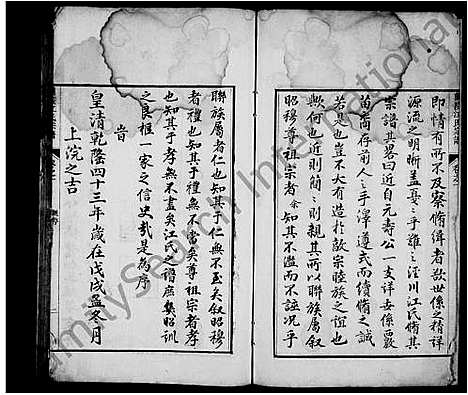 即情有所不及察脩緝者欲世係之精詳
源流之明晰蓋戛戛乎難之涇川江氏脩其
宗譜其畧曰近自元壽公一支詳女係嚴
尚存前人之手澤遵式而續脩之誠
若是也豈不大有造於敦宗睦族之誼也
歟何也近則簡簡則親其所以聯族屬叙
昭穆尊祖宗者余知其不濫而不誣况乎
聯族屬者仁也知其于仁無不至矣叙昭穆
者禮也知其于禮無不當矣尊祖宗者孝
也知其于孝無不盡矣江氏之譜庶幾昭訓
之良榘一家之信史哉是為序
旹
皇清乾隆四十三年歲在戊戌孟冬月
上浣之吉
FamilySearch International